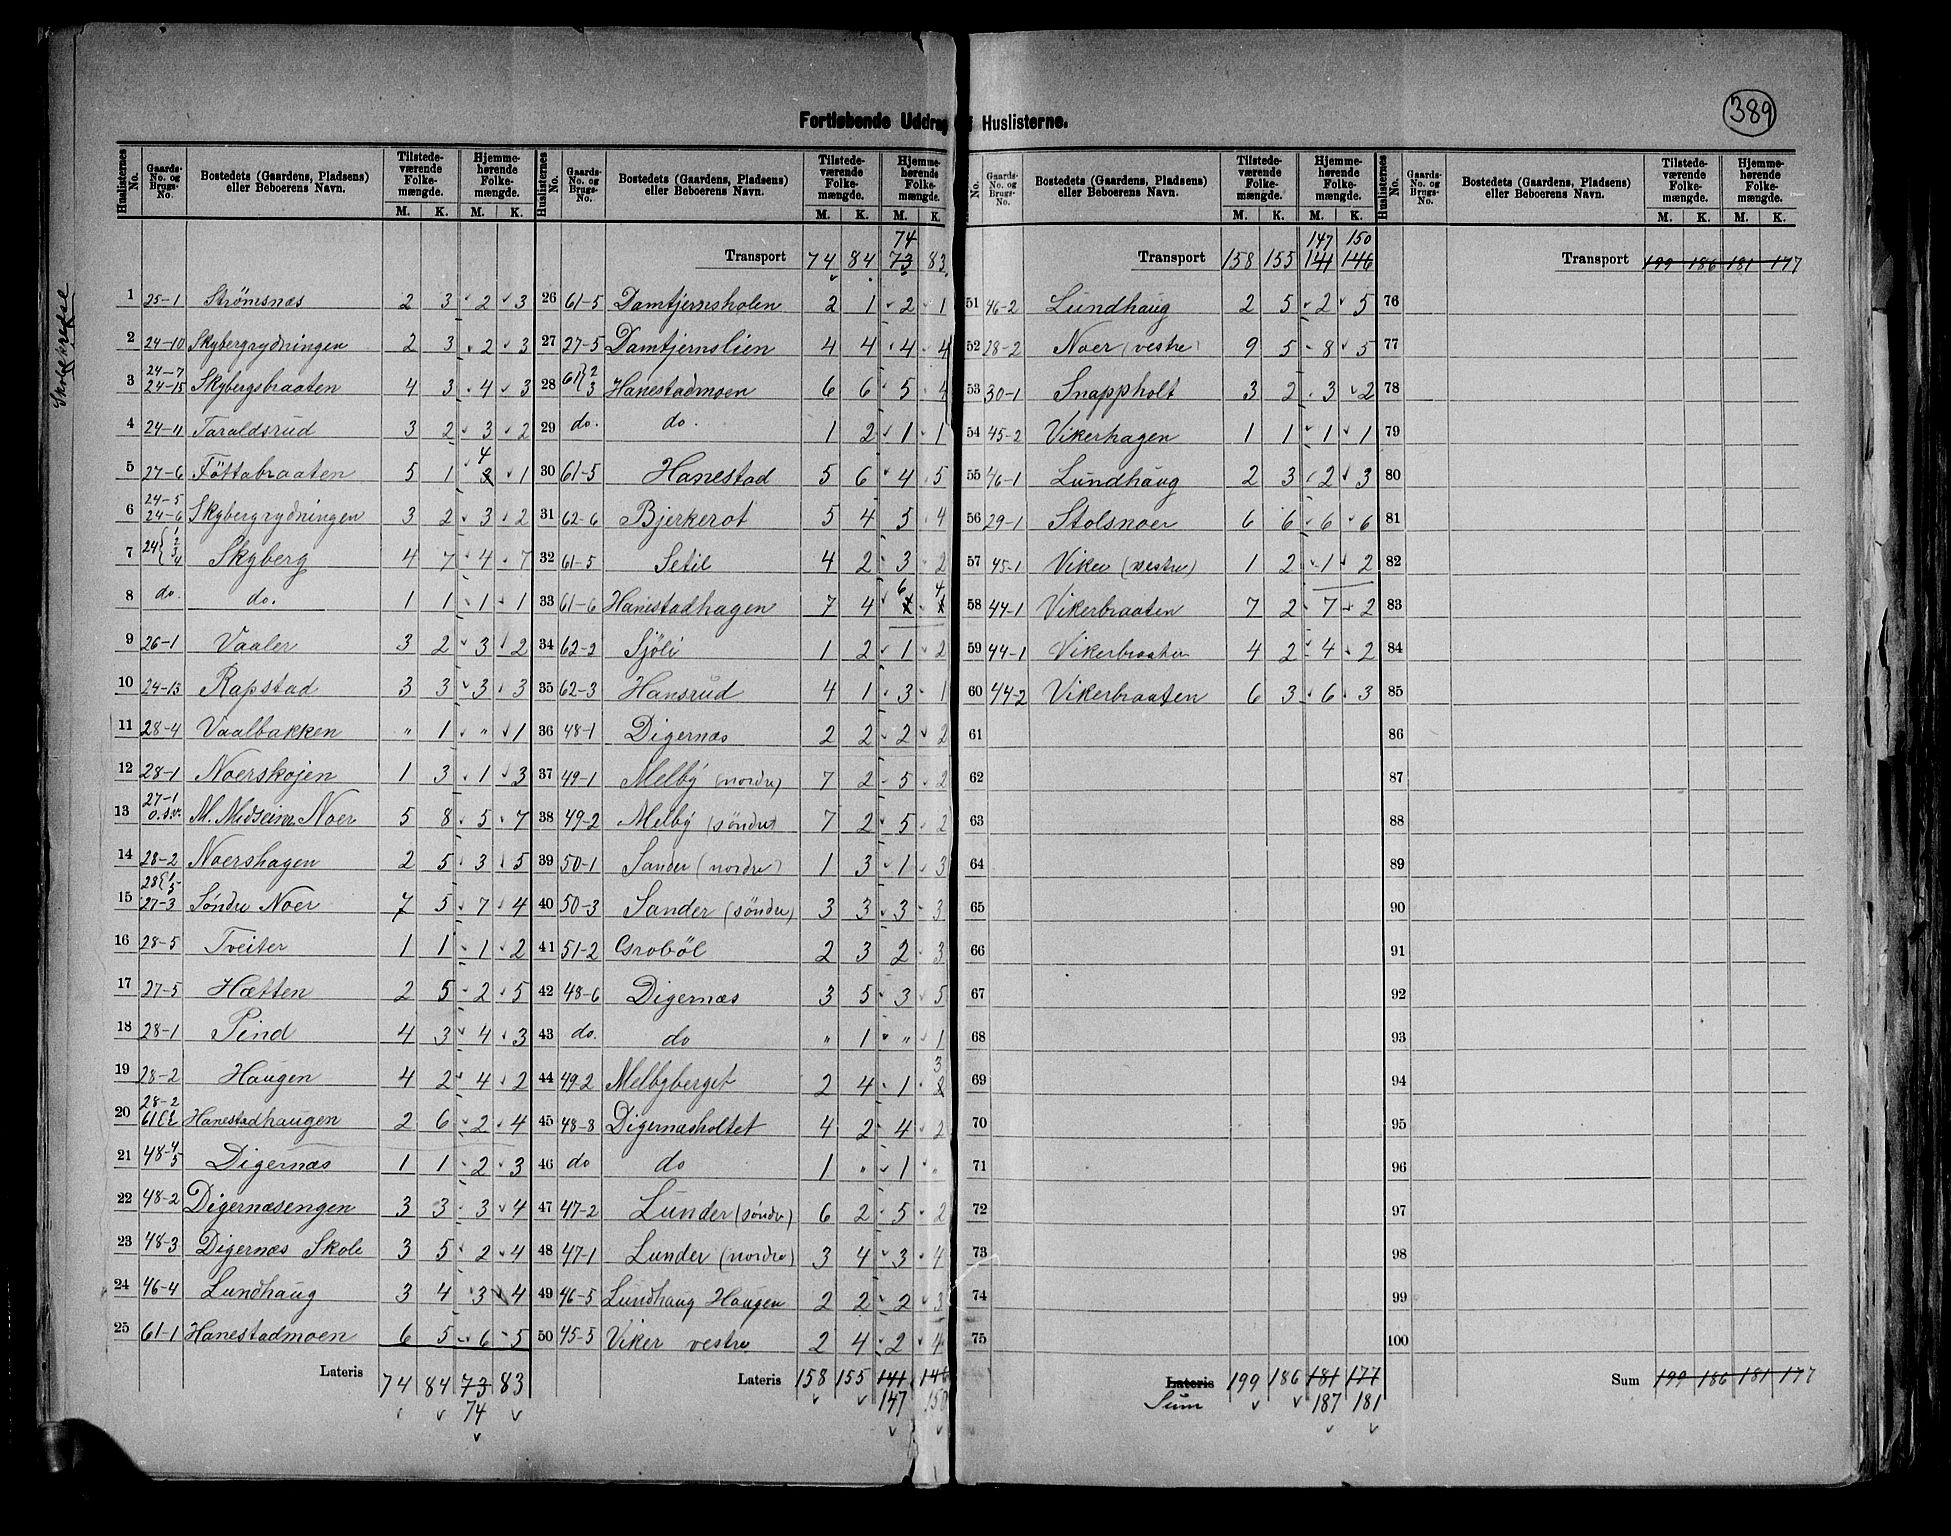 389
Fortløbende Uddrag
Huslisterne.
Skoldkreise
Huslisternes No. Gaards-No. og Brugs-No. Bostedets (Gaardens, Pladsens) eller Beboerens Navn. Tilstedeværende Folkemængde. M. K. Hjemmehørende Folkemængde. M. K.
1 25-1 Strømsnæs 2 3 2 3
2 24-10 Skybergrydningen 2 3 2 3
3 24-7 24-15 Skybergsbraaten 4 3 4 3
4 24-11 Taraldsrud 3 2 3 2
5 27-6 Föttabraaten 5 1 4 1
6 24-5 24-6 Skybergrydningen 3 2 3 2
7 24{1 2 3 4 Skyberg 4 7 4 7
8 do. do. 1 1 1 1
9 26-1 Vaaler 3 2 3 2
10 24-13 Rapstad 3 3 3 3
11 28-4 Vaalbakken " 1 " 1
12 28-1 Noerskojen 1 3 1 3
13 27-1 o.s.v. M. Midseim Noer 5 8 5 7
14 28-2 Noershagen 2 5 3 5
15 28{1 5 27-3 Søndre Noer 7 5 7 4
16 28-5 Tveiter 1 1 1 2
17 27-5 Hætten 2 5 2 5
18 28-1 Pind 4 3 4 3
19 28-2 Haugen 4 2 4 2
20 28-2 Hanestadhaugen 2 6 2 4
21 48-4 5 Digernæs 1 1 2 3
22 48-2 Digernæsengen 3 3 3 4
23 48-3 Digernæs Skole 3 5 2 4
24 46-4 Lundhaug 3 4 3 4
25 61-1 Hanestadmoen 6 5 6 5
Lateris 74 84 73 83
74
Huslisternes No. Gaards-No. og Brugs-No. Bostedets (Gaardens, Pladsens) eller Beboerens Navn. Tilstedeværende Folkemængde. M. K. Hjemmehørende Folkemængde. M. K.
74
Transport 74 84 73 83
26 61-5 Damtjernsholen 2 1 2 1
27 27-5 Damtjernslien 4 4 4 4
28 61}2 3 Hanestadmoen 6 6 5 4
29 do. do. 1 2 1 1
30 61-5 Hanestad 5 6 4 5
31 62-6 Bjerkerot 5 4 5 4
32 61-5 Setil 4 2 3 2
33 61-6 Hanestadhagen 7 4 6 4
34 62-2 Sjöli 1 2 1 2
35 62-3 Hansrud 4 1 3 1
36 48-1 Digernæs 2 2 2 2
37 49-1 Melby (nordre) 7 2 5 2
38 49-2 Melby (söndre) 7 2 5 2
39 50-1 Sander (nordre) 1 3 1 3
40 50-3 Sander (söndre) 3 3 3 3
41 51-2 Grobøl 2 3 2 3
42 48-6 Digernæs 3 5 3 5
43 do. do " 1 " 1
44 49-2 Melbyberget 2 4 1 3
45 48-8 Digernæsholtet 4 2 4 2
46 do do 1 " 1 "
47 47-2 Lunder (søndre) 6 2 5 2
48 47-1 Lunder (nordre) 3 4 3 4
49 46-5 Lundhaug Haugen 2 2 2 3
50 45-5 Viker vestre 2 4 2 4
Lateris 158 155 141 146
147 150
No. Gaards-No. og Brugs-No. Bostedets (Gaardens, Pladsens) eller Beboerens Navn. Tilstedeværende Folkemængde. M. K. Hjemmehørende Folkemængde. M. K.
147 150
Transport 158 155 141 146
51 46-2 Lundhaug 2 5 2 5
52 28-2 Noer (vestre) 9 5 8 5
53 30-1 Snappholt 3 2 3 2
54 45-2 Vikerhagen 1 1 1 1
55 46-1 Lundhaug 2 3 2 3
56 29-1 Stolsnoer 6 6 6 6
57 45-1 Viker (vestre) 1 2 1 2
58 44-1 Vikerbraaten 7 2 7 2
59 44-1 Vikerbraaten 4 2 4 2
60 44-2 Vikerbraaten 6 3 6 3
61
62
63
64
65
66
67
68
69
70
71
72
73
74
75
Lateris 199 186 181 177
Sum 187 181
Huslisternes No. Gaards-No. og Brugs-No. Bostedets (Gaardens, Pladsens) eller Beboerens Navn. Tilstedeværende Folkemængde. M. K. Hjemmehørende Folkemængde. M. K.
Transport 199 186 181 177
76
77
78
79
80
81
82
83
84
85
86
87
88
89
90
91
92
93
94
95
96
97
98
99
100
Sum 199 186 181 177